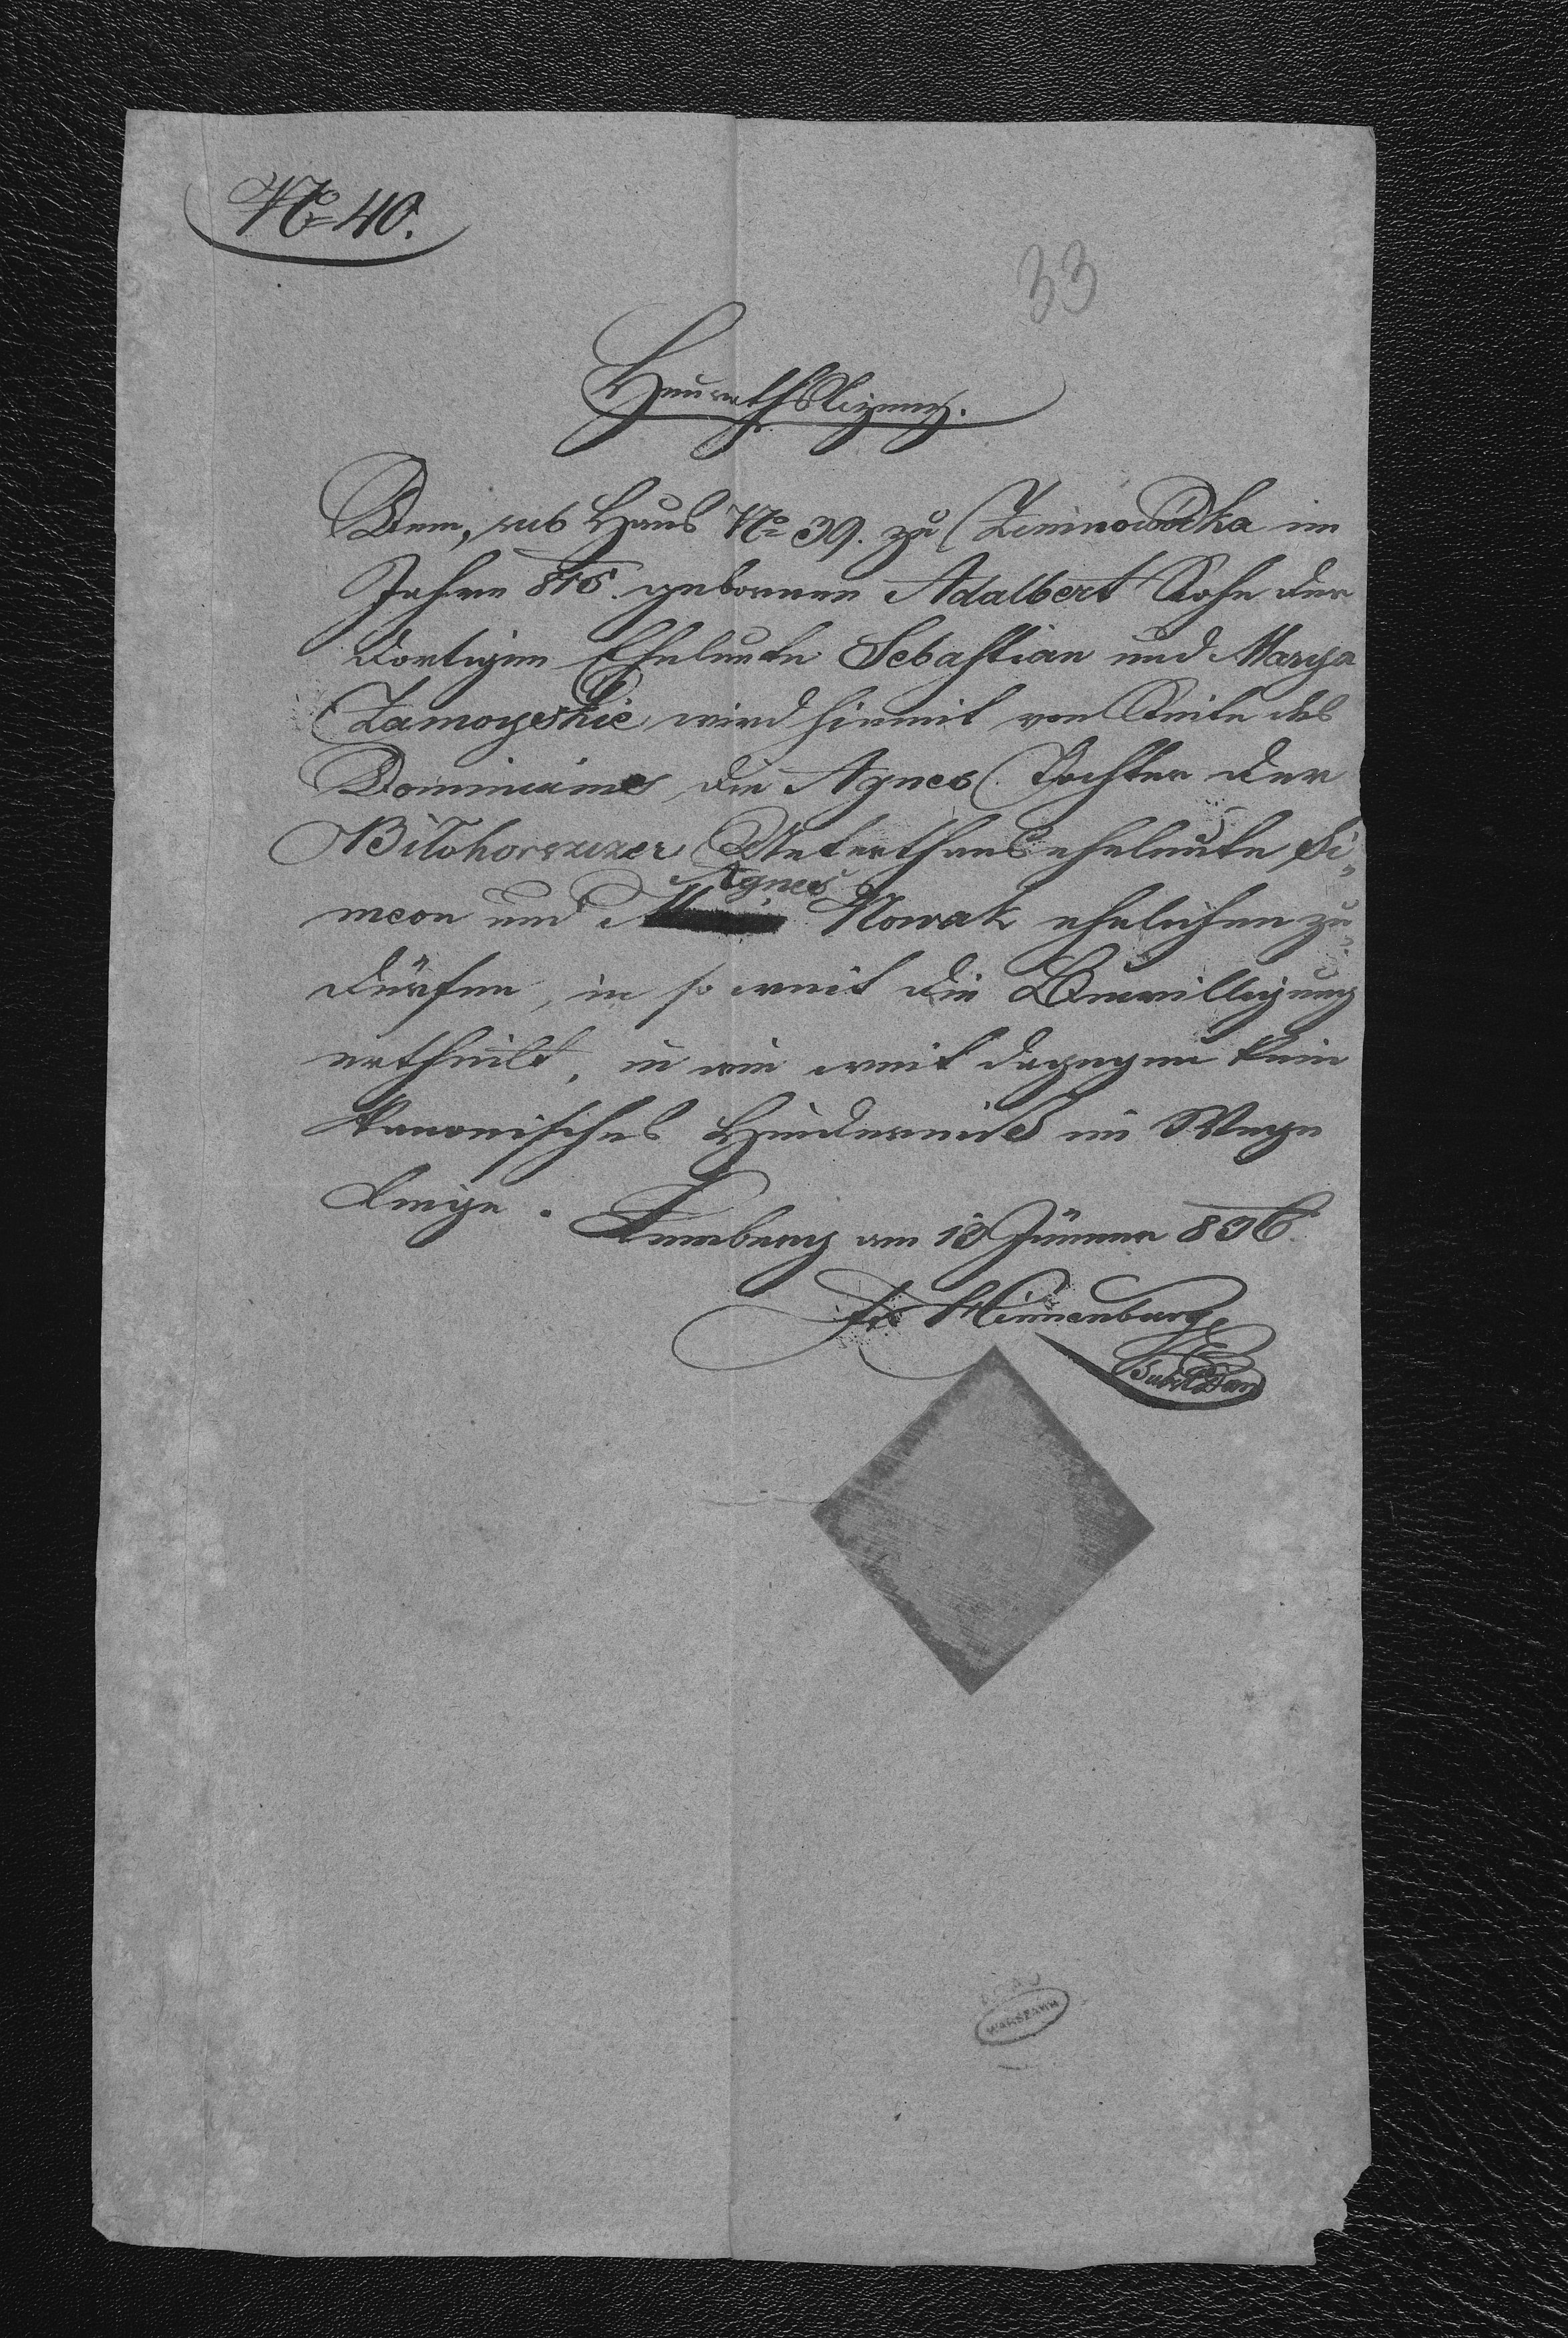 No 40.
33
Heurathslizenz.
Dem, sub Haus No 39. zu Zimnowodka im
Jahre 816. gebornen Adalbert Sohn der
dortigen Eheleute Sebastian und Marya
Zamoyskie wird hiemit von Seite des
Dominiums, die Agnes Tochter der
Bilohorszczer Unterthanseheleute Si„
meon und Agnes Nowak ehelichen zu
dürfen, in so weit die Bewilligung
ertheilt, in wie weit dagegen kein
kanonisches Hinderniß im Wege
liege.
Lemberg am 13 Jänner 836.
WARSZAWA